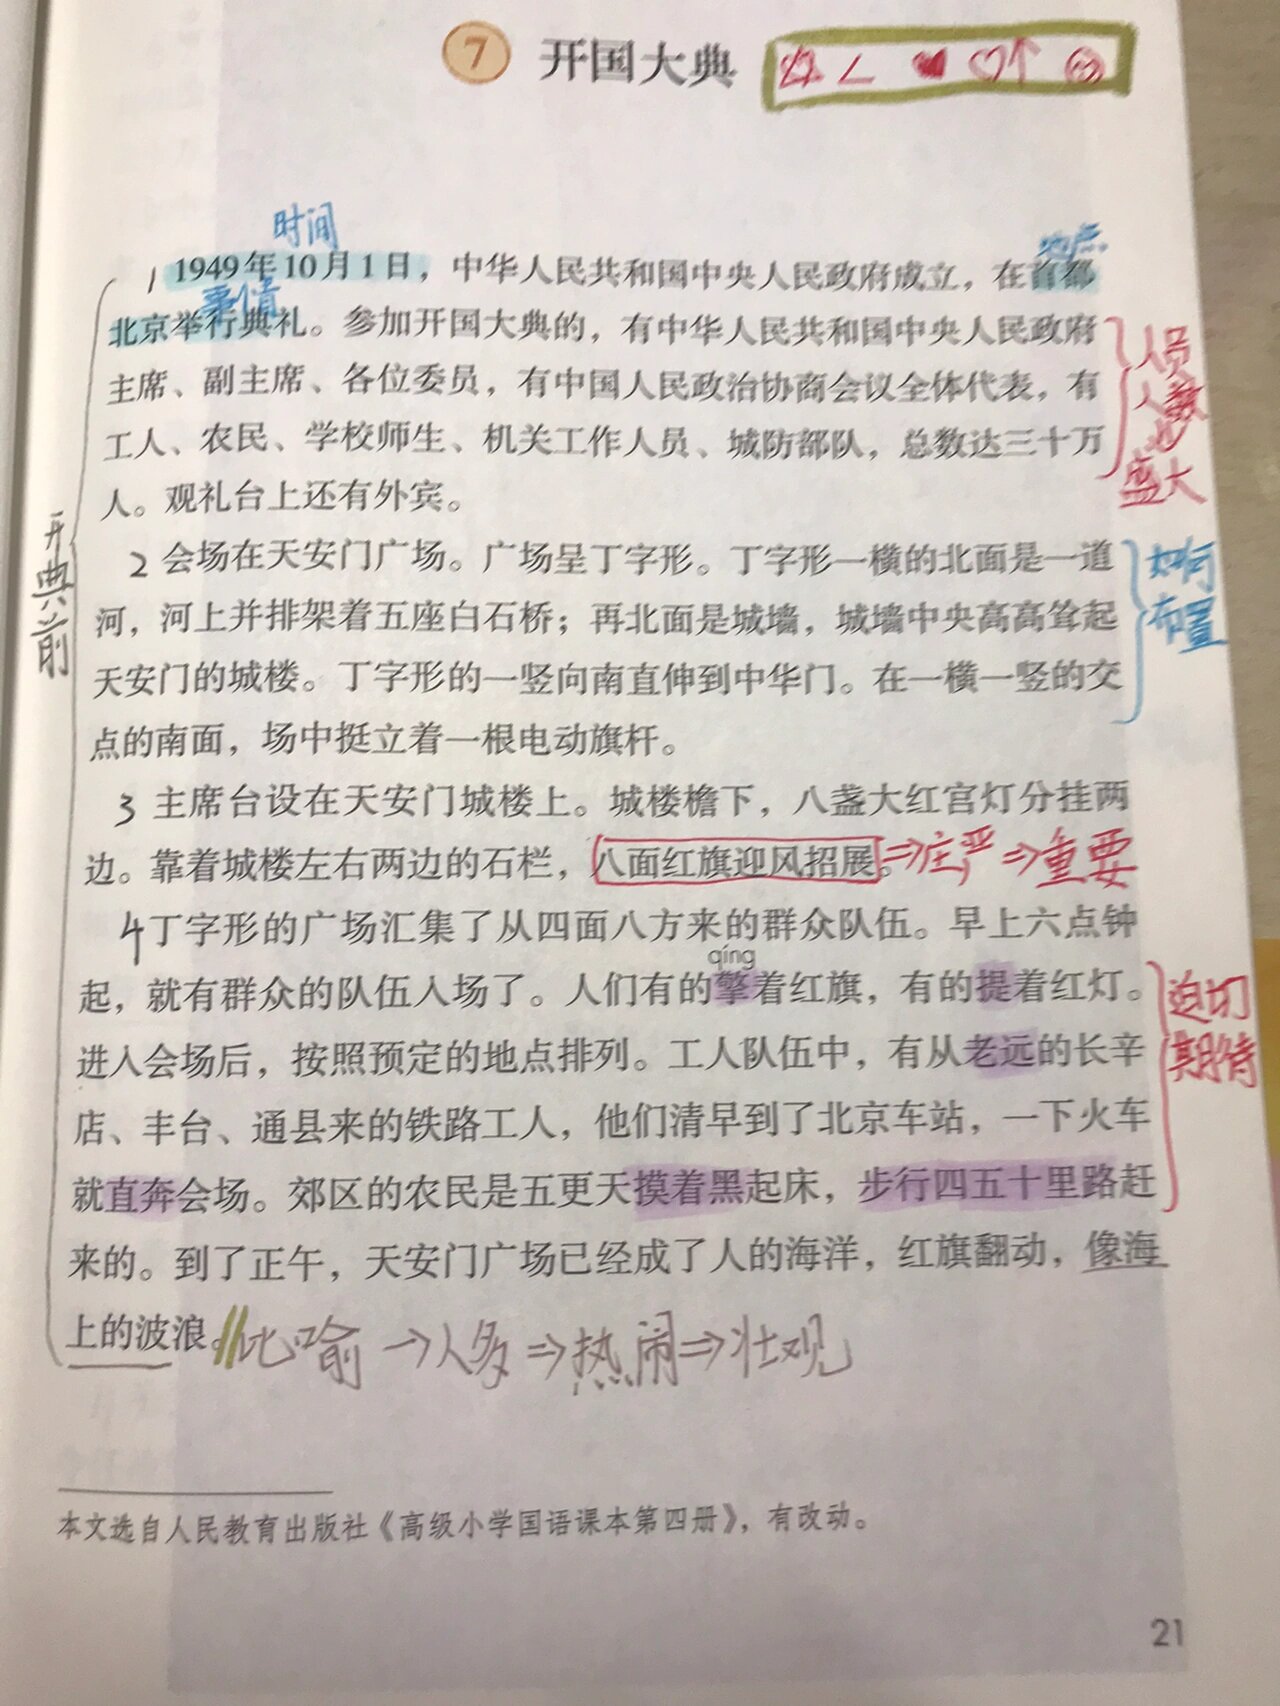 7 开国大典
时间
地点
1 1949年10月1日，中华人民共和国中央人民政府成立，在首都
事情
北京举行典礼。参加开国大典的，有中华人民共和国中央人民政府
主席、副主席、各位委员，有中国人民政治协商会议全体代表，有
工人、农民、学校师生、机关工作人员、城防部队，总数达三十万
人。观礼台上还有外宾。
人员
人数
盛大
2 会场在天安门广场。广场呈丁字形。丁字形一横的北面是一道
河，河上并排架着五座白石桥；再北面是城墙，城墙中央高高耸起
天安门的城楼。丁字形的一竖向南直伸到中华门。在一横一竖的交
点的南面，场中挺立着一根电动旗杆。
如何
布置
开典前
3 主席台设在天安门城楼上。城楼檐下，八盏大红宫灯分挂两
边。靠着城楼左右两边的石栏，八面红旗迎风招展。⇒庄严⇒重要
4 丁字形的广场汇集了从四面八方来的群众队伍。早上六点钟
qíng
起，就有群众的队伍入场了。人们有的擎着红旗，有的提着红灯。
进入会场后，按照预定的地点排列。工人队伍中，有从老远的长辛
店、丰台、通县来的铁路工人，他们清早到了北京车站，一下火车
就直奔会场。郊区的农民是五更天摸着黑起床，步行四五十里路赶
来的。到了正午，天安门广场已经成了人的海洋，红旗翻动，像海
上的波浪。比喻→人多⇒热闹⇒壮观
迫切
期待
本文选自人民教育出版社《高级小学国语课本第四册》，有改动。
21